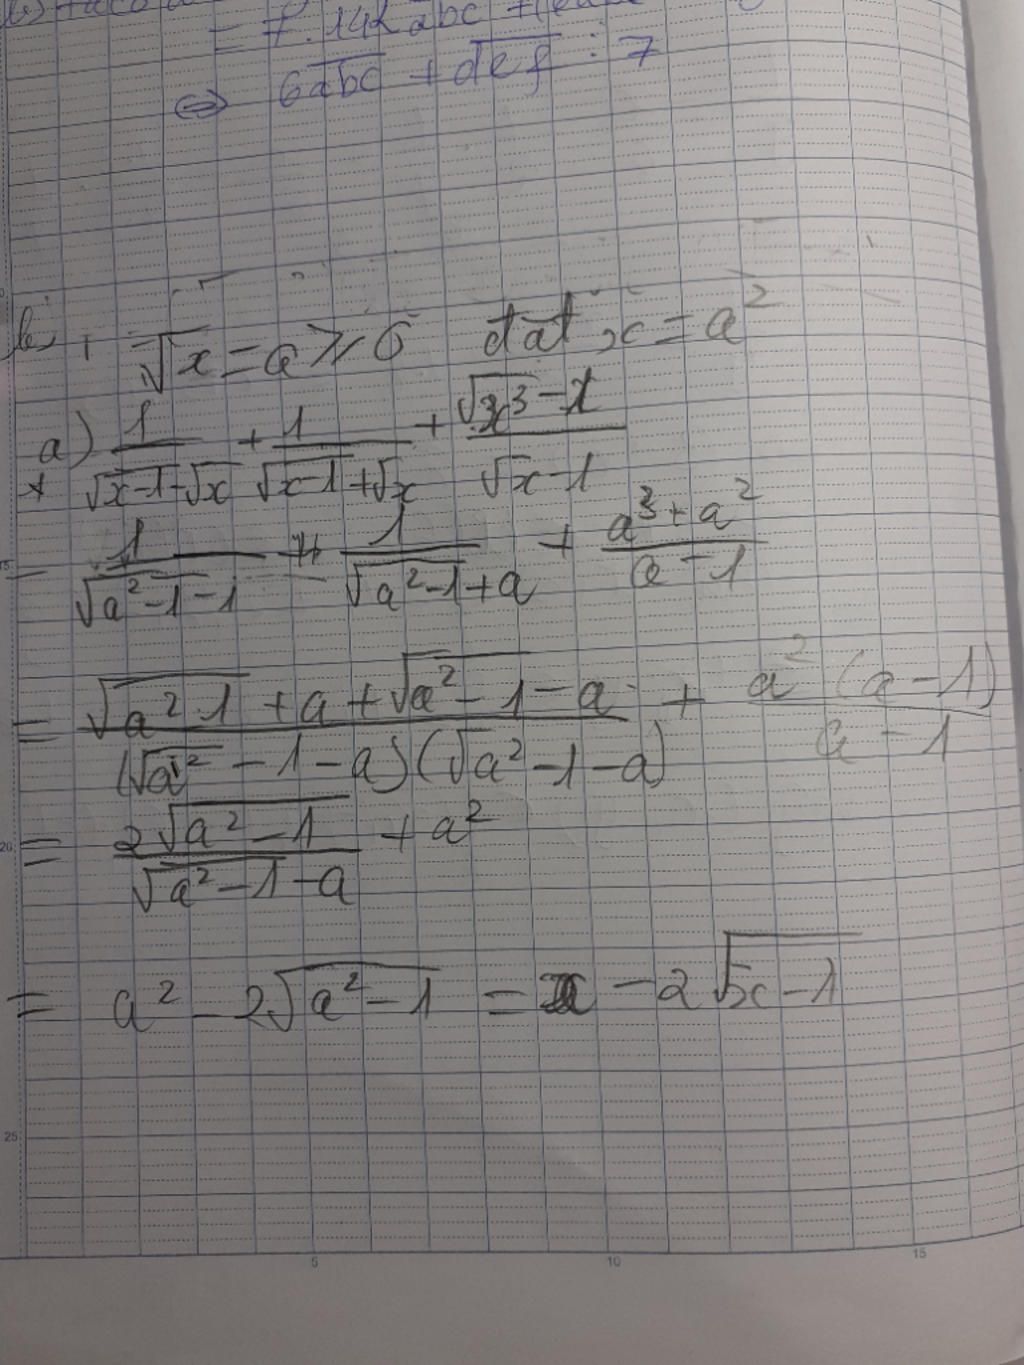 = 7.142abc
⇔ 6abc + def : 7
√x = a ≥ 0 đặt x = a²
a) 1/(√x-1 - √x) + 1/(√x-1 + √x) + (√x³ - 1)/(√x - 1)
= 1/(√a²-1 - 1) + 1/(√a²-1 + a) + (a³ + a²)/(a - 1)
= (√a²-1 + a + √a²-1 - a)/((√a² - 1 - a)(√a² - 1 - a)) + a²(a - 1)/(a - 1)
= 2√a²-1/(√a²-1 - a) + a²
= a² - 2√a²-1 = x - 2√x-1
5 10 15
15
20
25